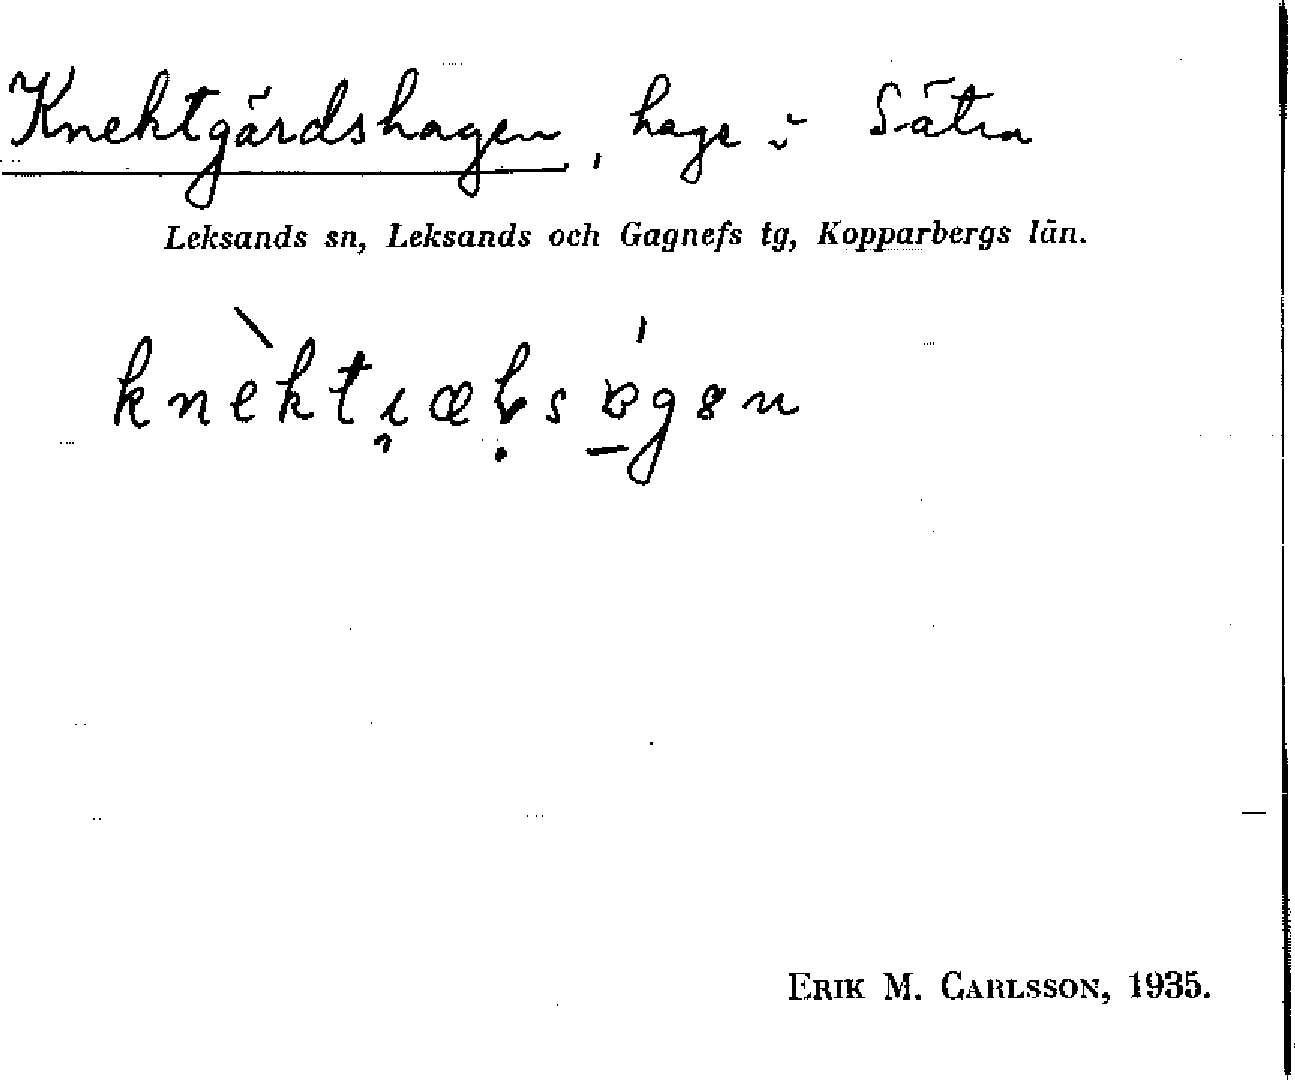 Knektgärdshagen, hage i Sätra
Leksands sn, Leksands och Gagnefs tg, Kopparbergs län.
ERIK M. CARLSSON, 1935.